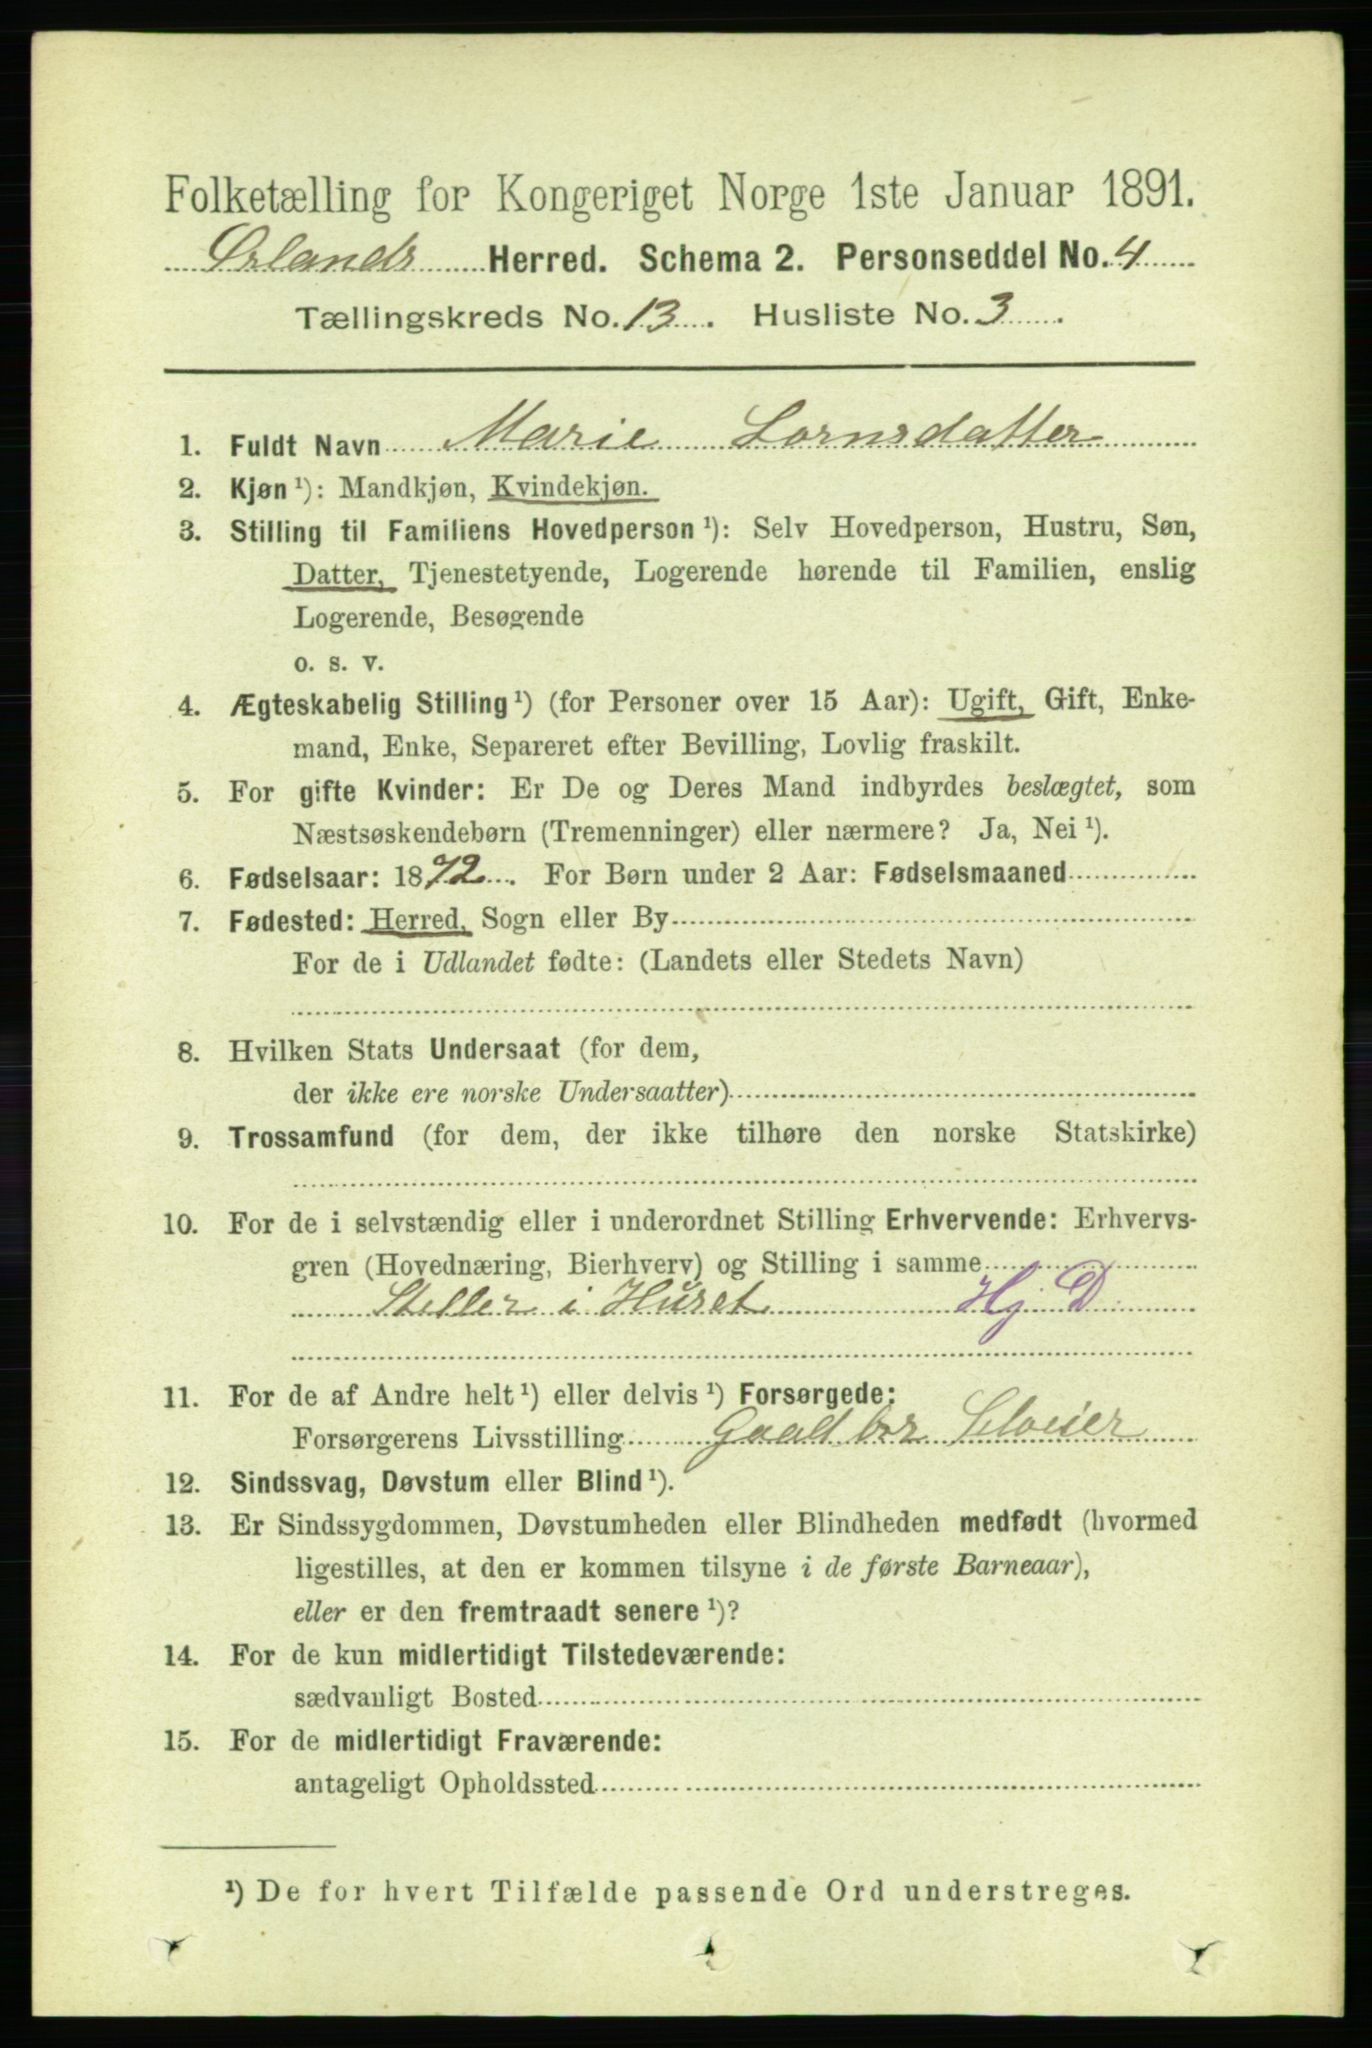 Folketælling for Kongeriget Norge 1ste Januar 1891.
Ørlands Herred. Schema 2. Personseddel No. 4
Tællingskreds No. 13. Husliste No. 3.
1. Fuldt Navn Marie Lornsdatter
2. Kjøn ¹): Mandkjøn, Kvindekjøn.
3. Stilling til Familiens Hovedperson ¹): Selv Hovedperson, Hustru, Søn,
Datter, Tjenestetyende, Logerende hørende til Familien, enslig
Logerende, Besøgende
o. s. v.
4. Ægteskabelig Stilling ¹) (for Personer over 15 Aar): Ugift, Gift, Enke-
mand, Enke, Separeret efter Bevilling, Lovlig fraskilt.
5. For gifte Kvinder: Er De og Deres Mand indbyrdes beslægtet, som
Næstsøskendebørn (Tremenninger) eller nærmere? Ja, Nei ¹).
6. Fødselsaar: 1872. For Børn under 2 Aar: Fødselsmaaned
7. Fødested: Herred, Sogn eller By
For de i Udlandet fødte: (Landets eller Stedets Navn)
8. Hvilken Stats Undersaat (for dem,
der ikke ere norske Undersaatter)
9. Trossamfund (for dem, der ikke tilhøre den norske Statskirke)
10. For de i selvstændig eller i underordnet Stilling Erhvervende: Erhvervs-
gren (Hovednæring, Bierhverv) og Stilling i samme
Steller i Huset Hj D
11. For de af Andre helt ¹) eller delvis ¹) Forsørgede:
Forsørgerens Livsstilling Gaadbr Seloeier
12. Sindssvag, Døvstum eller Blind ¹).
13. Er Sindssygdommen, Døvstumheden eller Blindheden medfødt (hvormed
ligestilles, at den er kommen tilsyne i de første Barneaar),
eller er den fremtraadt senere ¹)?
14. For de kun midlertidigt Tilstedeværende:
sædvanligt Bosted
15. For de midlertidigt Fraværende:
antageligt Opholdssted
¹) De for hvert Tilfælde passende Ord understreges.